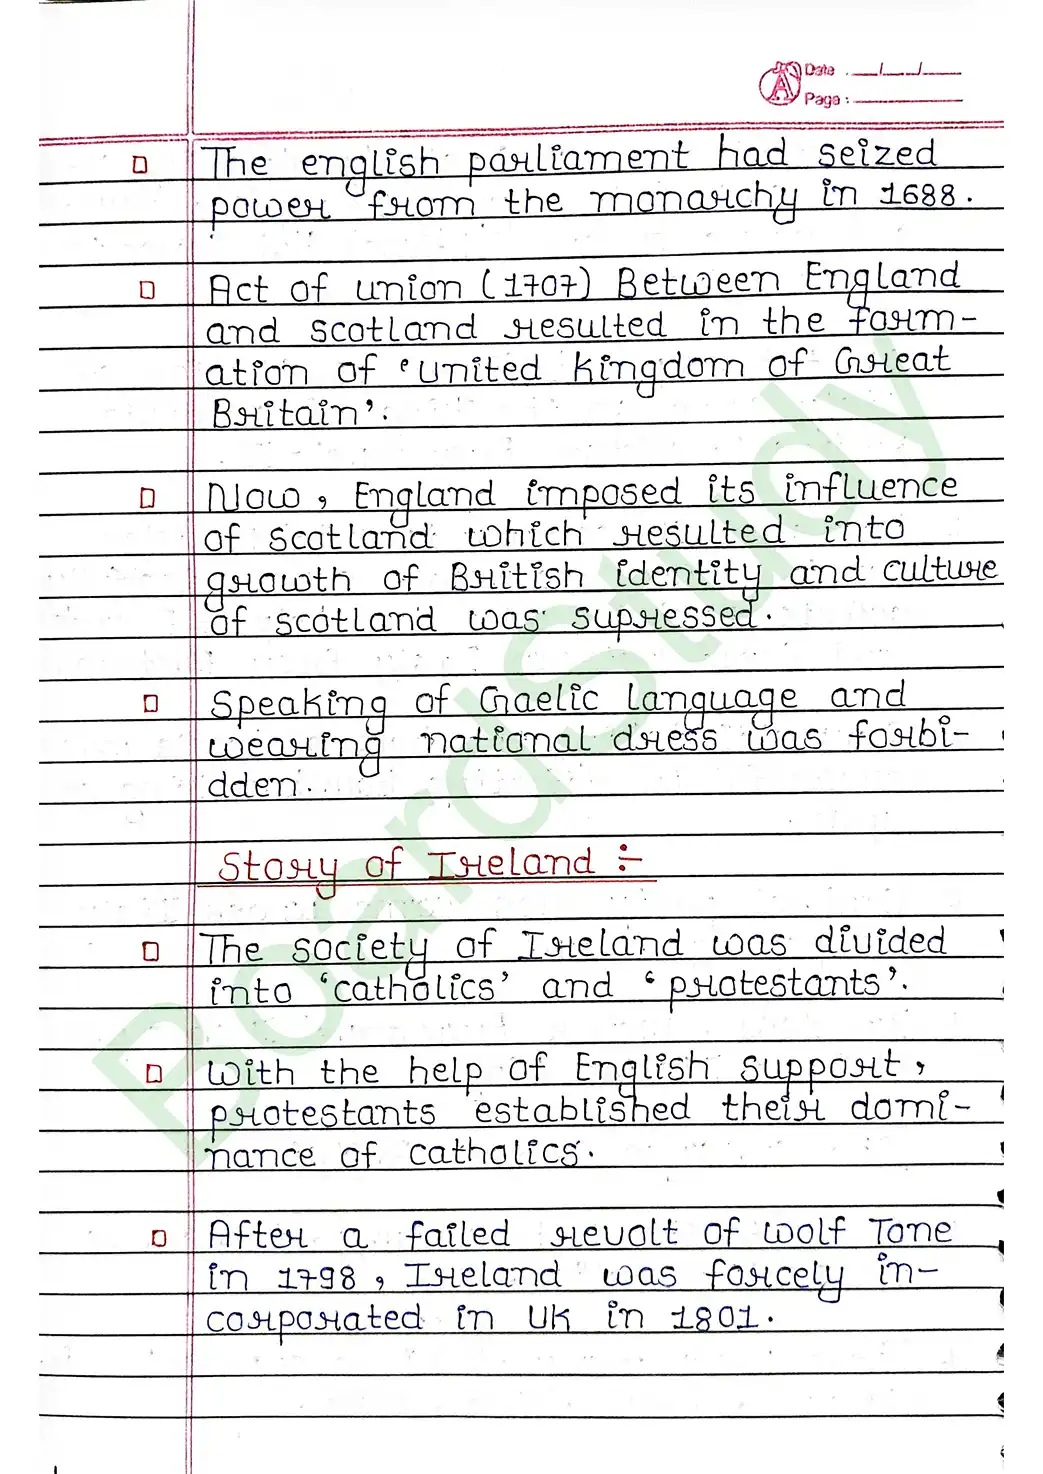 Date : __/__/__
Page : ______
The english parliament had seized
power from the monarchy in 1688.
Act of union (1707) Between England
and scotland resulted in the form-
ation of 'united kingdom of Great
Britain'.
Now, England imposed its influence
of scotland which resulted into
growth of British identity and culture
of scotland was supressed.
Speaking of Gaelic language and
wearing national dress was forbi-
dden.
Story of Ireland :-
The society of Ireland was divided
into 'catholics' and 'protestants'.
With the help of English support,
protestants established their domi-
nance of catholics.
After a failed revolt of wolf Tone
in 1798, Ireland was forcely in-
corporated in UK in 1801.
BoardStudy